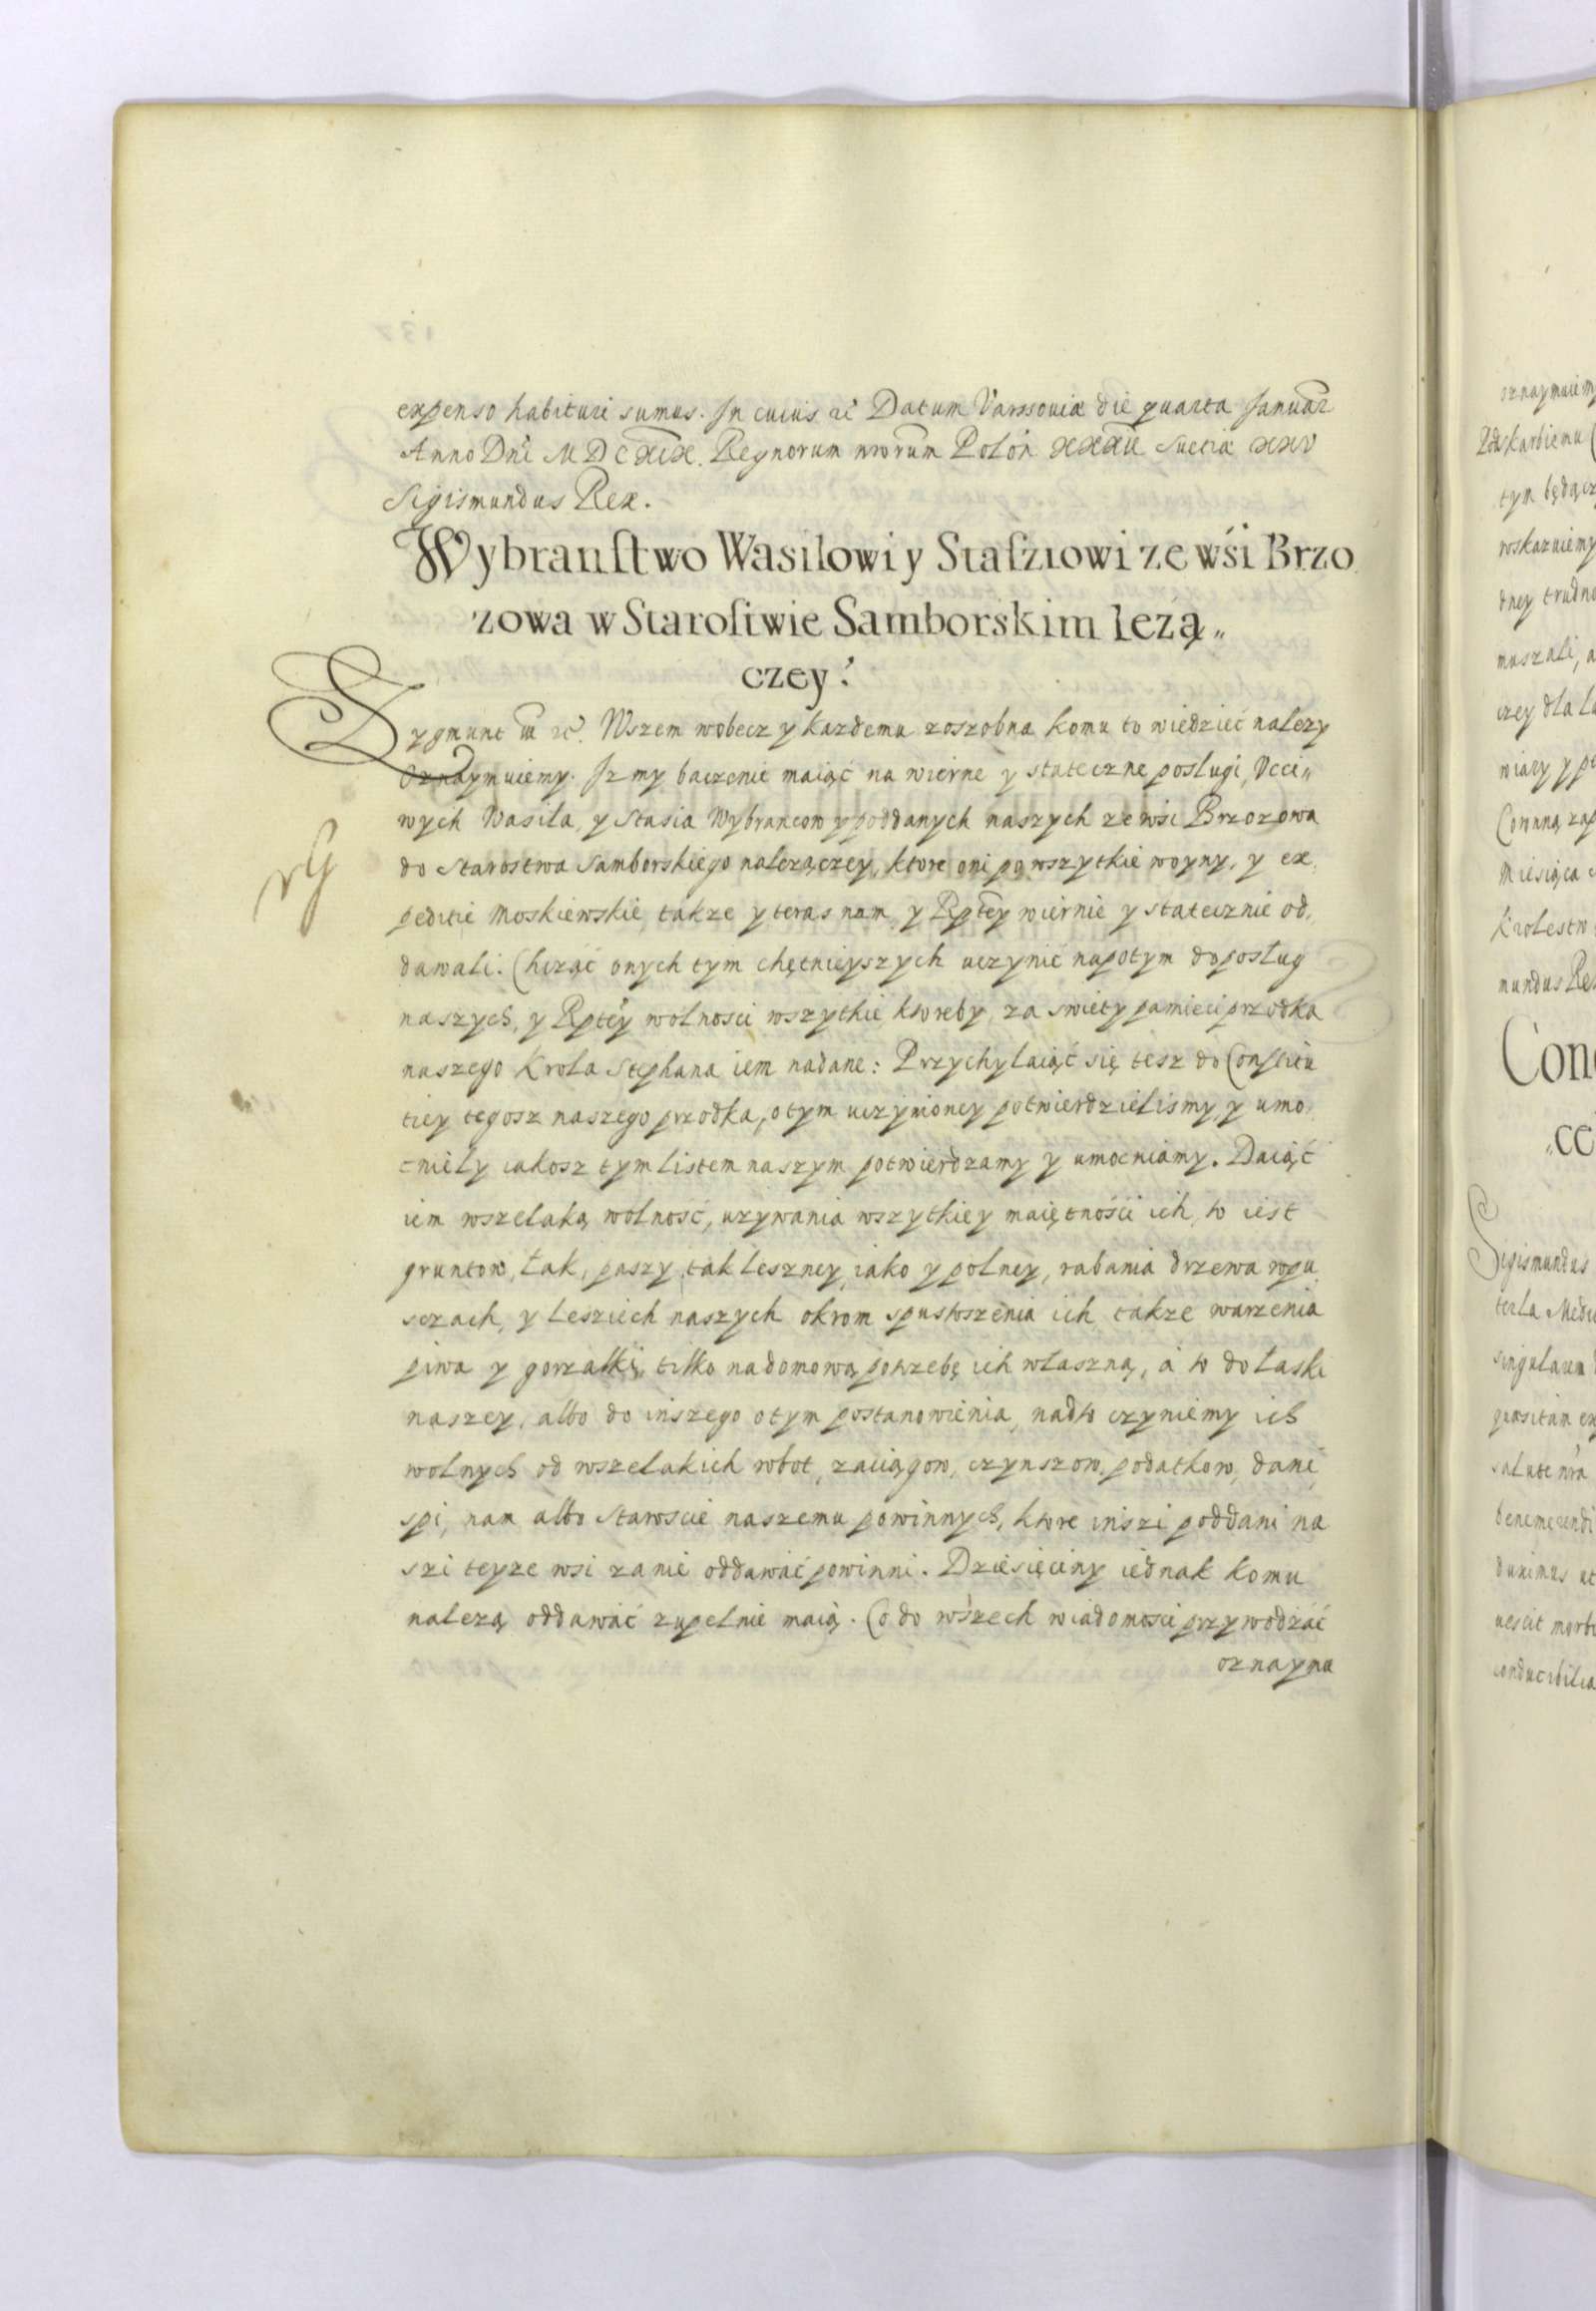 expenso habituri sumus. In cuius rč Datum Varsoviæ die quarta Januar
Anno Dnī MDCXIX. Regnorum nrorum Polon XXXII Sueciæ XXV
Sigismundus Rex.
Wybranſtwo Wasilowi y Staſziowi ze wśi Brzo
zowa w Staroſtwie Samborskim leżą„
czey.
Zygmunt III rč. Wszem wobecz y kazdemu zoszobna komu to wiedzieć nalezy
Oznaymuiemy. Iz my baczenie maiąć na wierne y stateczne poslugi, Vcci„
wych Wasila, y Stasia Wybrancow y poddanych naszych ze wsi Brzozowa
do Starostwa Samborskiego nalezączey, ktore oni po wszytkie woyny, y ex„
peditie Moskiewskie, takze y teras nam y Rptey wiernie y statecznie od„
dawali. Chcząć onych tym chętnieyszych uczynić napotym do poslug
naszych, y Rptey wolnosci wszytkie ktoreby za swiety pamieci przodka
naszego Krola Stephana iem nadane: Przychylaiąć się tesz do Constitu
tiey tegosz naszego przodka, o tym uczynioney potwierdzielismy, y umo„
cniely iakosz tym listem naszym potwierdzamy y umocniamy. Daiąć
iem wszelaką wolność, uzywania wszytkiey maiętnośći ich, to iest
gruntow, łak, paszy, tak leszney, iako y polney, rabania drzewa w pu
sczach, y lesziech naszych okrom spustoszenia ich, takze warzenia
piwa y gorzałki, tilko na domową potrzebę ich właszną, á to do łaski
naszey, albo do inszego o tym postanowienia, nadto czyniemy ich
wolnych od wszelakich robot, zaciągow, czynszow, podatkow, dani,
spi, nam albo Staroscie naszemu powinnych, ktore inszi poddani na
szi teyze wsi zanie oddawáć powinni. Dziesięciny iednak komu
nalezą oddawáć zupelnie maią. Co do wszech wiadomosci przywodząć
oznaymu